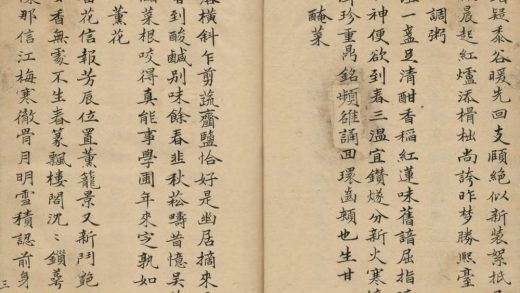 疑黍谷暖先回支頤絶似新裝絮抵
晨起紅爐添榾柮尚誇昨梦勝熙臺
調粥
一盏且清酣香稻紅蓮味舊諳屈指
神便欲到春三温宜鑽燧分新火寒
珍重鼎銘頻雒誦回環齒頰也生甘
醃菜
落橫斜乍剪蔬齏鹽恰好是幽居摘來
看到酸鹹别味餘春韭秋菘疇昔憶吳
菜根咬得真能事學圃年來定孰如
薰花
花信報芳辰位置薰籠景又新鬥艶
香無處不生春篆飄樓閣沉〻鎖蕚
那信江梅寒徹骨月明雪積認前身
三